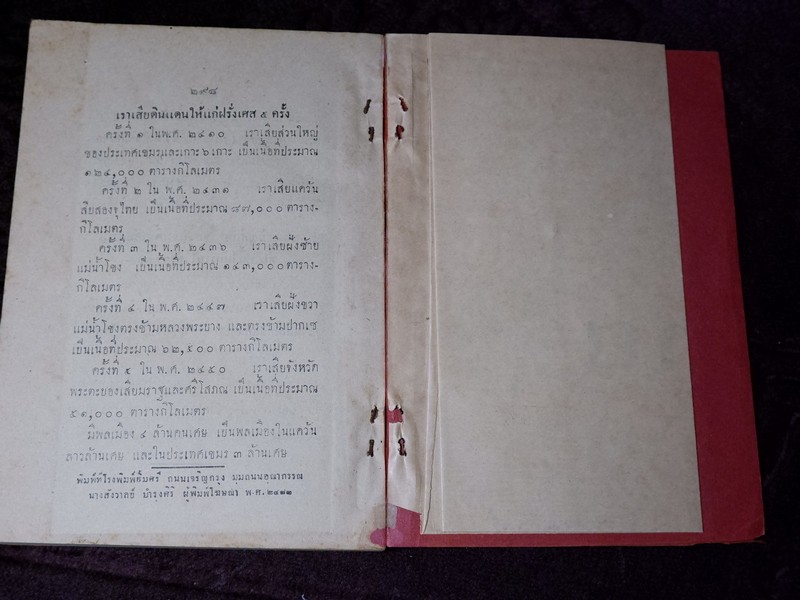 ๒๙๘
เราเสียดินแดนให้แก่ฝรั่งเศส ๕ ครั้ง
ครั้งที่ ๑ ในพ.ศ. ๒๔๑๐ เราเสียส่วนใหญ่
ของประเทศเขมรและเกาะ ๖ เกาะ เป็นเนื้อที่ประมาณ
๑๒๔,๐๐๐ ตารางกิโลเมตร
ครั้งที่ ๒ ใน พ.ศ. ๒๔๓๑ เราเสียแคว้น
สิบสองจุไทย เป็นเนื้อที่ประมาณ ๘๗,๐๐๐ ตาราง-
กิโลเมตร
ครั้งที่ ๓ ใน พ.ศ. ๒๔๓๖ เราเสียฝั่งซ้าย
แม่น้ำโขง เป็นเนื้อที่ประมาณ ๑๔๓,๐๐๐ ตาราง-
กิโลเมตร
ครั้งที่ ๔ ใน พ.ศ. ๒๔๔๗ เราเสียฝั่งขวา
แม่น้ำโขงตรงข้ามหลวงพระบาง และตรงข้ามปากเซ
เป็นเนื้อที่ประมาณ ๖๒,๕๐๐ ตารางกิโลเมตร
ครั้งที่ ๕ ใน พ.ศ. ๒๔๕๐ เราเสียจังหวัด
พระตะบองเสียมราฐและศรีโสภณ เป็นเนื้อที่ประมาณ
๕๑,๐๐๐ ตารางกิโลเมตร
มีพลเมือง ๔ ล้านคนเศษ เป็นพลเมืองในแคว้น
ลาวล้านเศษ และในประเทศเขมร ๓ ล้านเศษ
พิมพ์ที่โรงพิมพ์ ถนนเจริญกรุง มุมถนนอุณากรรณ
นางสังวาลย์ บำรุงศิริ ผู้พิมพ์โฆษณา พ.ศ.